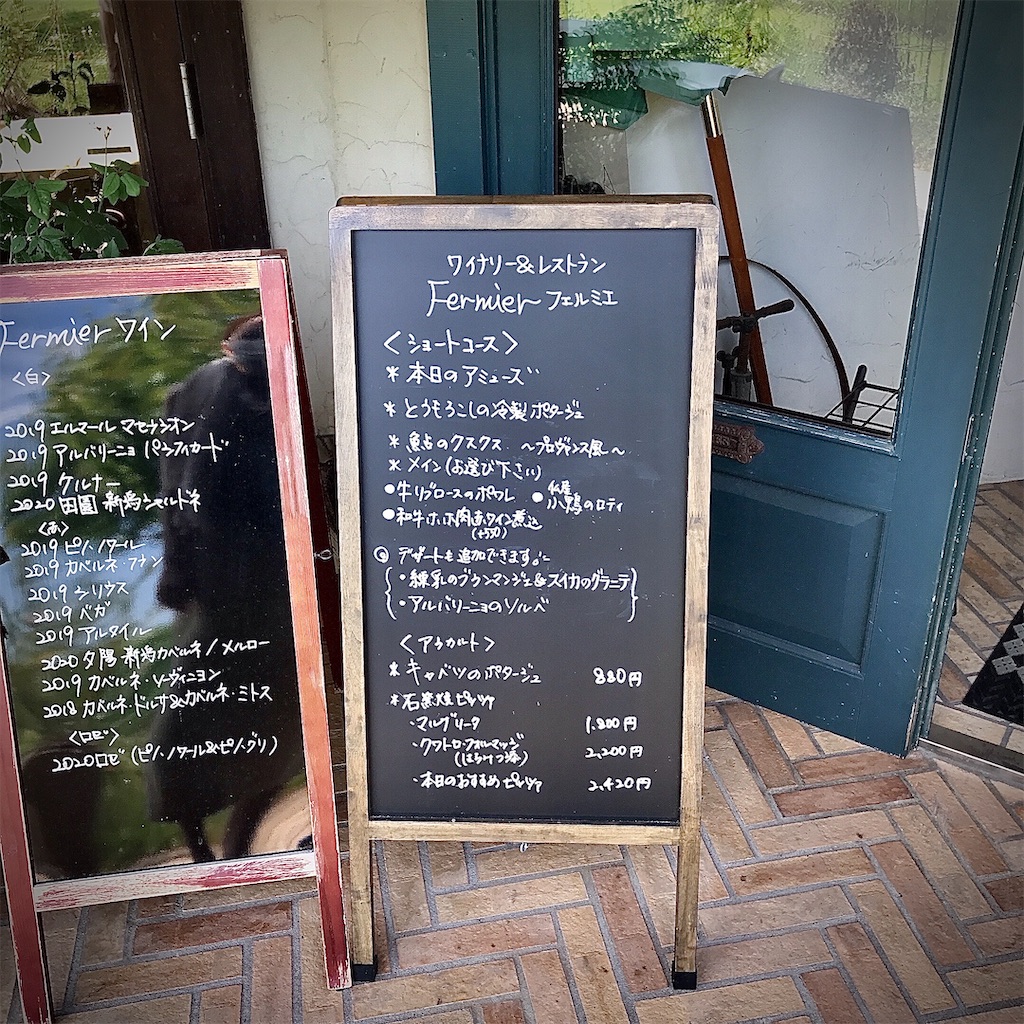 Fermier ワイン
<白>
2019 エルマール マセラシオン
2019 アルバリーニョ
2019 ケルナー
2020 田園 新潟シャルドネ
<赤>
2019 ピノ・ノワール
2019 カベルネ・フラン
2019 シリウス
2019 ベガ
2019 アルタイル
2020 夕陽 新潟カベルネ/メルロー
2019 カベルネ・ソーヴィニヨン
2018 カベルネ・ドルサ&カベルネ・ミトス
<ロゼ>
2020 ロゼ (ピノ・ノワール&ピノ・グリ)
ワイナリー&レストラン
Fermier フェルミエ
<ショートコース>
* 本日のアミューズ
* とうもろこしの冷製ポタージュ
* 魚貝のクスクス ~プロヴァンス風~
* メイン(お選び下さい)
● 牛リブロースのポワレ ● 小鴨のロティ
● 和牛ホホ肉赤ワイン煮込
(+550)
◎ デザートも追加できます。
・練乳のブランマンジェ&スイカのグラニテ
・アルバリーニョのソルベ
<アラカルト>
* キャベツのポタージュ 880円
* 石窯焼ピッツァ
・マルゲリータ 1,800円
・クワトロ・フォルマッジ 2,200円
(はちみつ添)
・本日のおすすめピッツァ 2,420円